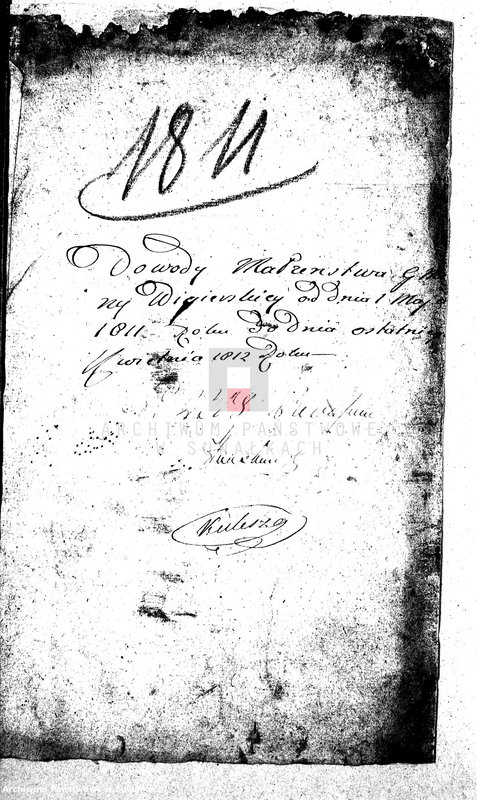 1811
Dowody Małzenstwa
ny Wigierskiey od dnia 1 Maja
1811 Roku do dnia ostatnie
Kwietnia 1812 Roku
ARCHIWUM PAŃSTWOWE
W SUWAŁKACH
Kulesza
Archiwum Państwowe w Suwałkach